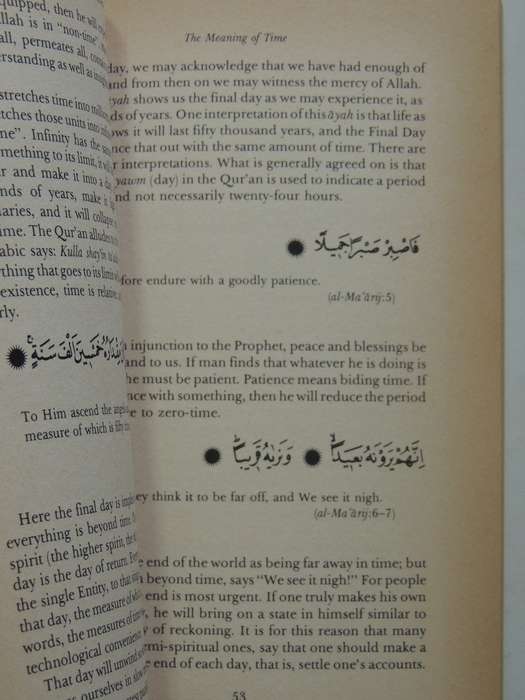 quipped, then he will
llah is in "non-time".
all, permeates all,
erstanding as well as
stretches time into
tches those units into
ne". Infinity has the
mething to its limit, it
r and make it into a
nds of years, make it
aries, and it will collapse
me. The Qur'an alludes to
abic says: Kulla
thing that goes to its limit
existence, time is
rly.
مِقْدَارُهُ خَمْسِينَ أَلْفَ سَنَةٍ
To Him ascend the
measure of which is
Here the final day is
everything is beyond time.
spirit (the higher spirit,
day is the day of return.
the single Entity, to that
that day, the measure of
words, the measures of
technological
That day will unwind
ourselves in
The Meaning of Time
day, we may acknowledge that we have had enough of
and from then on we may witness the mercy of Allah.
yah shows us the final day as we may experience it, as
ds of years. One interpretation of this āyah is that life as
ows it will last fifty thousand years, and the Final Day
nce that out with the same amount of time. There are
r interpretations. What is generally agreed on is that
yawm (day) in the Qur'an is used to indicate a period
nd not necessarily twenty-four hours.
فَاصْبِرْ صَبْرًا جَمِيلًا
fore endure with a goodly patience.
(al-Ma'ārij:5)
n injunction to the Prophet, peace and blessings be
and to us. If man finds that whatever he is doing is
he must be patient. Patience means biding time. If
nce with something, then he will reduce the period
e to zero-time.
إِنَّهُمْ يَرَوْنَهُ بَعِيدًا وَنَرَاهُ قَرِيبًا
ey think it to be far off, and We see it nigh.
(al-Ma'ārij:6–7)
e end of the world as being far away in time; but
beyond time, says "We see it nigh!" For people
end is most urgent. If one truly makes his own
, he will bring on a state in himself similar to
of reckoning. It is for this reason that many
mi-spiritual ones, say that one should make a
e end of each day, that is, settle one's accounts.
53